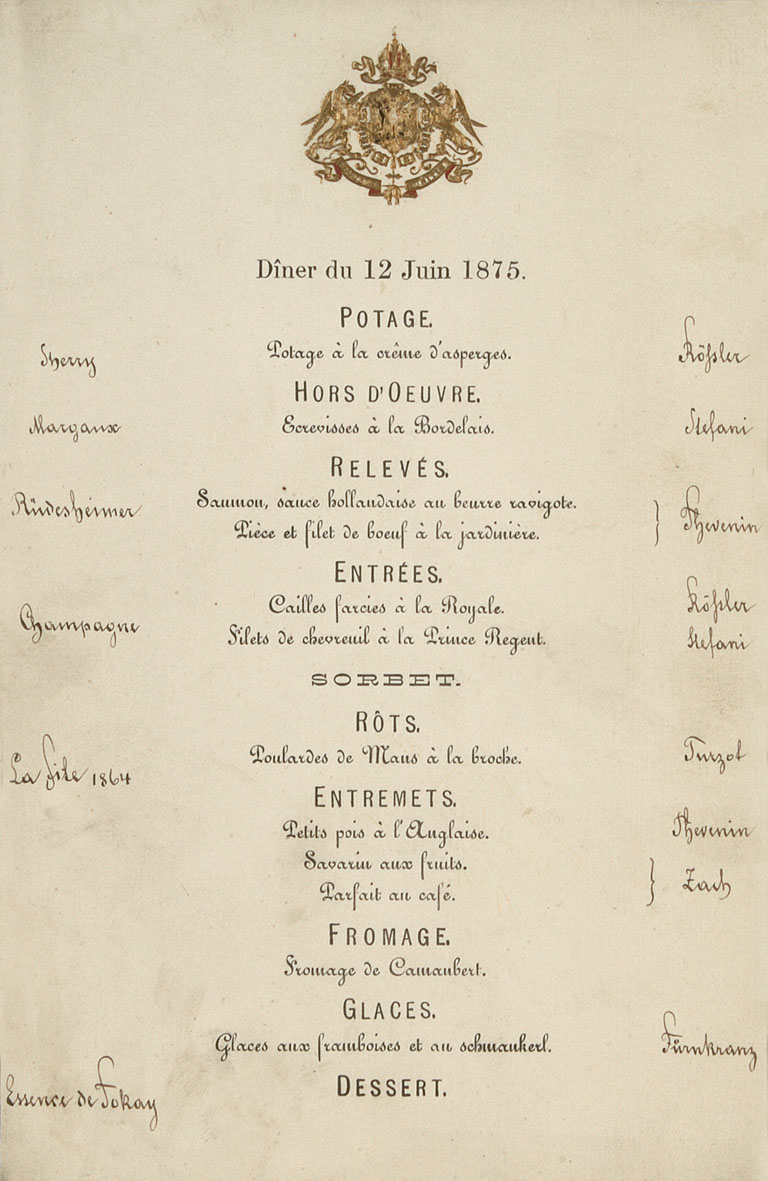 Dîner du 12 Juin 1875.
POTAGE.
Sherry
Potage à la crême d'asperges.
Rößler
HORS D'OEUVRE.
Margaux
Ecrevisses à la Bordelais.
Stefani
RELEVÉS.
Rüdesheimer
Saumon, sauce hollandaise au beurre ravigote.
Pièce et filet de boeuf à la jardinière.
} Thevenin
ENTRÉES.
Champagne
Cailles farcies à la Royale.
Rößler
Filets de chevreuil à la Prince Regent.
Stefani
SORBET.
RÔTS.
La file 1864
Poulardes de Mans à la broche.
Turzot
ENTREMETS.
Petits pois à l'Anglaise.
Thevenin
Savarin aux fruits.
Parfait au café.
} Zach
FROMAGE.
Fromage de Camanbert.
GLACES.
Glaces aux framboises et au schmankerl.
Fürnkranz
DESSERT.
Essence de Tokay